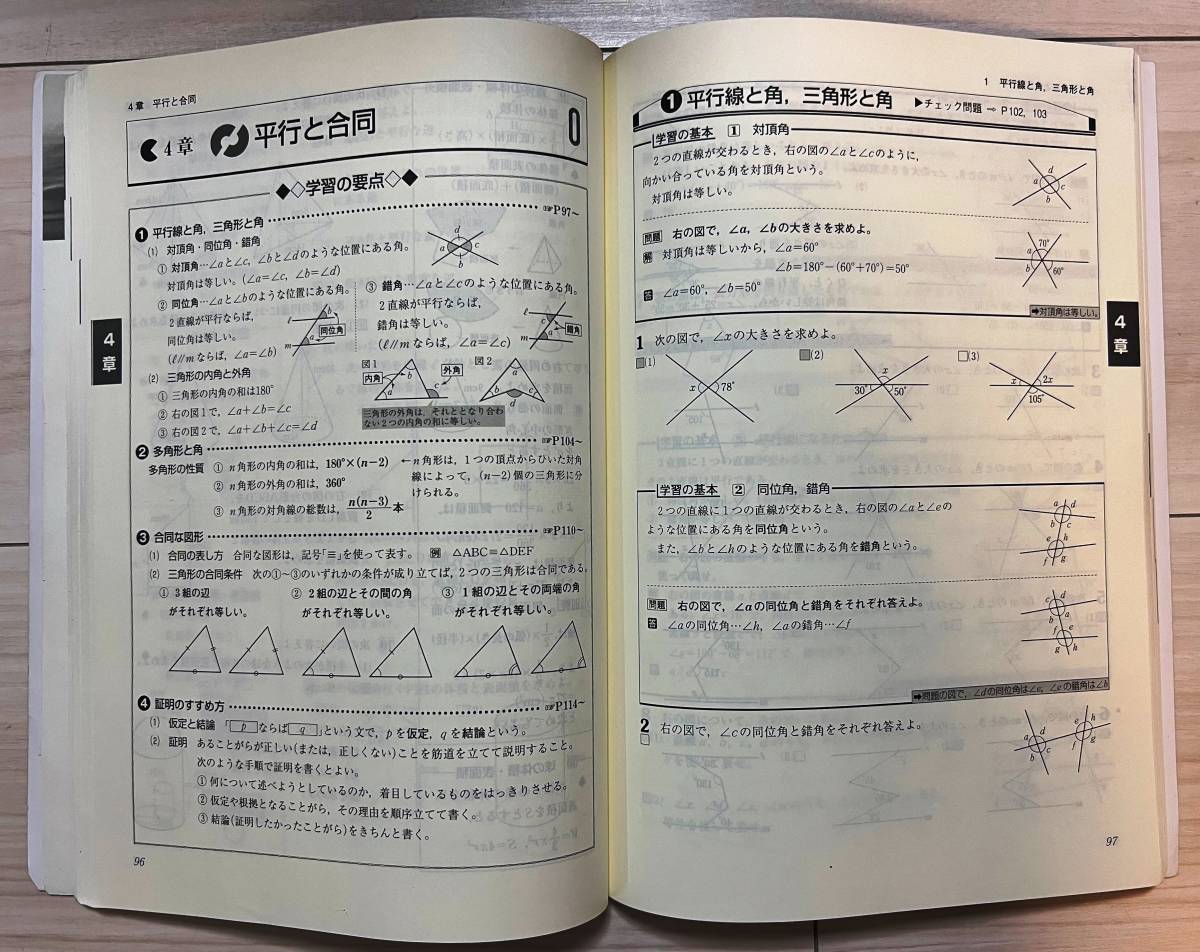 4章 平行と合同
4章 平行と合同
◆◇学習の要点◇◆
❶ 平行線と角，三角形と角 ☞P97～
(1) 対頂角・同位角・錯角
① 対頂角…∠aと∠c，∠bと∠dのような位置にある角。
対頂角は等しい。(∠a=∠c，∠b=∠d)
d
a c
b
② 同位角…∠aと∠bのような位置にある角。
2直線が平行ならば，
同位角は等しい。
(ℓ//mならば，∠a=∠b)
ℓ b
同位角
m a
③ 錯角…∠aと∠cのような位置にある角。
2直線が平行ならば，
錯角は等しい。
(ℓ//mならば，∠a=∠c)
ℓ c
錯角
m a
(2) 三角形の内角と外角
① 三角形の内角の和は180°
② 右の図1で，∠a+∠b=∠c
③ 右の図2で，∠a+∠b+∠c=∠d
図1
内角 b 外角
a c
図2
b
a c
d
三角形の外角は，それととなり合わ
ない2つの内角の和に等しい。
❷ 多角形と角 ☞P104～
多角形の性質 ① n角形の内角の和は，180°×(n−2) ←n角形は，1つの頂点からひいた対角
線によって，(n−2)個の三角形に分
けられる。
② n角形の外角の和は，360°
③ n角形の対角線の総数は，n(n−3)/2 本
❸ 合同な図形 ☞P110～
(1) 合同の表し方 合同な図形は，記号「≡」を使って表す。 例 △ABC≡△DEF
(2) 三角形の合同条件 次の①～③のいずれかの条件が成り立てば，2つの三角形は合同である。
① 3組の辺 ② 2組の辺とその間の角 ③ 1組の辺とその両端の角
がそれぞれ等しい。 がそれぞれ等しい。 がそれぞれ等しい。
❹ 証明のすすめ方 ☞P114～
(1) 仮定と結論 「pならばq」という文で，pを仮定，qを結論という。
(2) 証明 あることがらが正しい(または，正しくない)ことを筋道を立てて説明すること。
次のような手順で証明を書くとよい。
① 何について述べようとしているのか，着目しているものをはっきりさせる。
② 仮定や根拠となることがら，その理由を順序立てて書く。
③ 結論(証明したかったことがら)をきちんと書く。
96
4章
1 平行線と角，三角形と角
❶ 平行線と角，三角形と角 ▶チェック問題⇨P102，103
学習の基本 1 対頂角
2つの直線が交わるとき，右の図の∠aと∠cのように，
向かい合っている角を対頂角という。
対頂角は等しい。
d
a c
b
問題 右の図で，∠a，∠bの大きさを求めよ。
解 対頂角は等しいから，∠a=60°
∠b=180°−(60°+70°)=50°
答 ∠a=60°，∠b=50°
70°
a
b 60°
➡対頂角は等しい。
1 次の図で，∠xの大きさを求めよ。
(1) (2) (3)
x 78°
x
30° 50°
x 2x
105°
学習の基本 2 同位角，錯角
2つの直線に1つの直線が交わるとき，右の図の∠aと∠eの
ような位置にある角を同位角という。
また，∠bと∠hのような位置にある角を錯角という。
a d
b c
e h
f g
問題 右の図で，∠aの同位角と錯角をそれぞれ答えよ。
答 ∠aの同位角…∠h，∠aの錯角…∠f
c d
b a
f e
g h
➡問題の図で，∠dの同位角は∠e，∠eの錯角は∠b
2 右の図で，∠cの同位角と錯角をそれぞれ答えよ。
a d
b c
e h
f g
97
4章